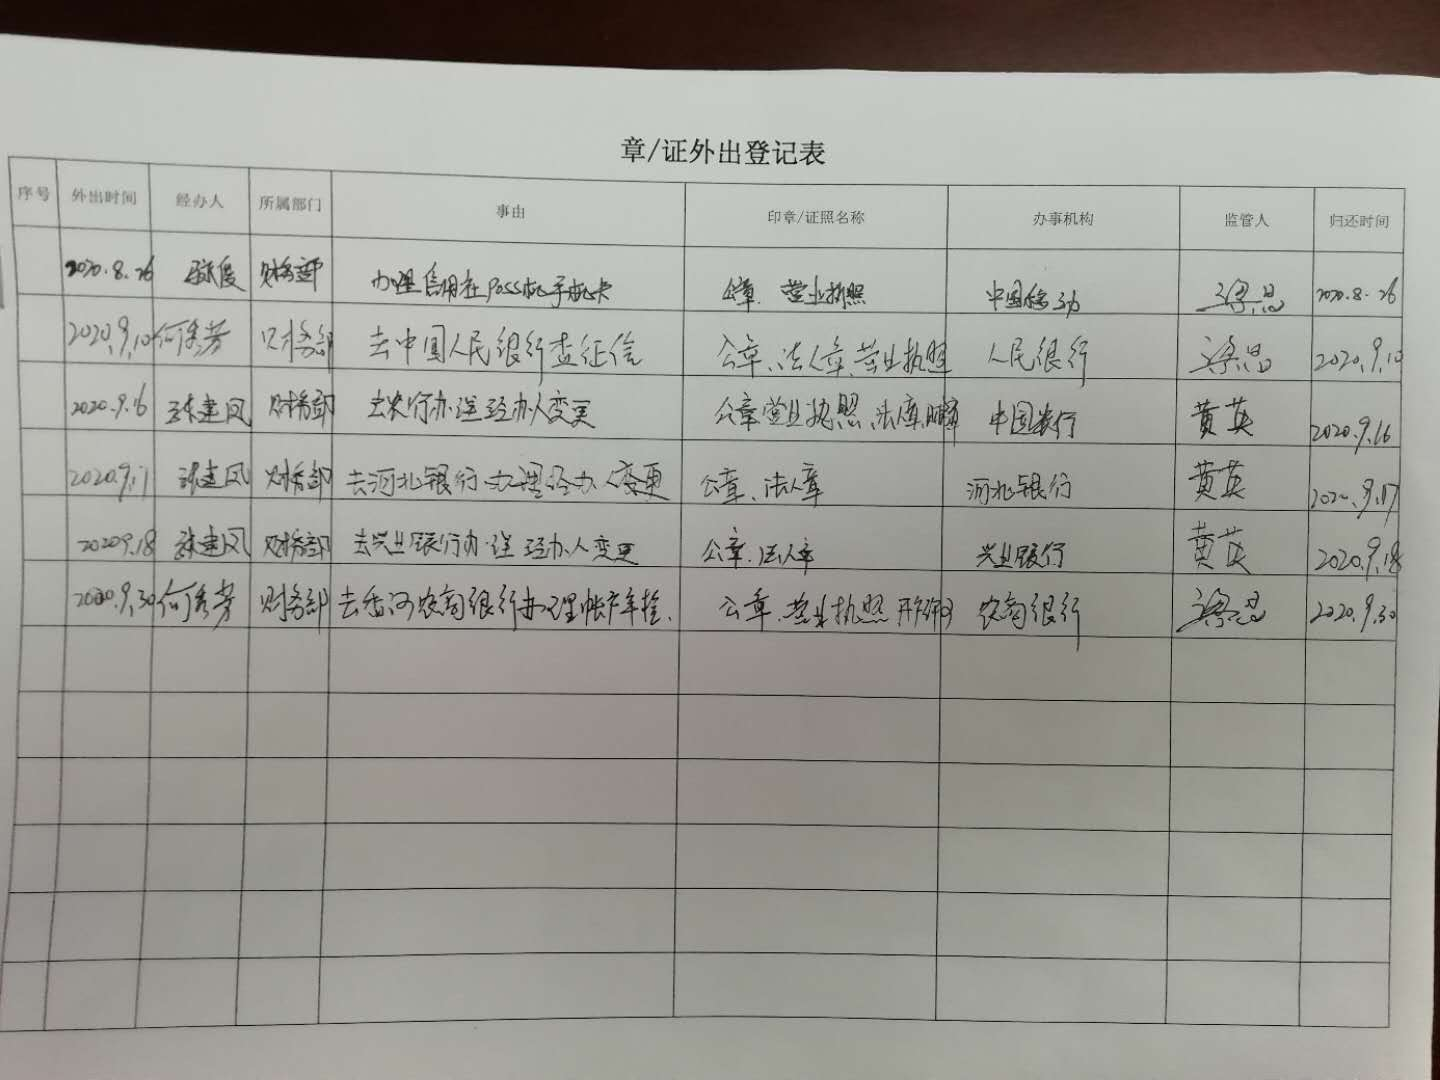 章/证外出登记表
序号 外出时间 经办人 所属部门 事由 印章/证照名称 办事机构 监管人 归还时间
2020.8.26 财务部 办理信用社Poss机手机卡 公章、营业执照 中国移动 2020.8.26
2020.9.10 何秀芳 财务部 去中国人民银行查征信 公章、法人章、营业执照 人民银行 梁思 2020.9.10
2020.9.16 张建凤 财务部 去农行办理经办人变更 公章营业执照、法 中国农行 黄英 2020.9.16
2020.9.17 张建凤 财务部 去河北银行办理经办人变更 公章、法人章 河北银行 黄英 2020.9.17
2020.9.18 张建凤 财务部 去兴业银行办理经办人变更 公章、法人章 兴业银行 黄英 2020.9.18
2020.9.30 何秀芳 财务部 去香河农商银行办理帐户年检. 公章、营业执照 农商银行 梁思 2020.9.30